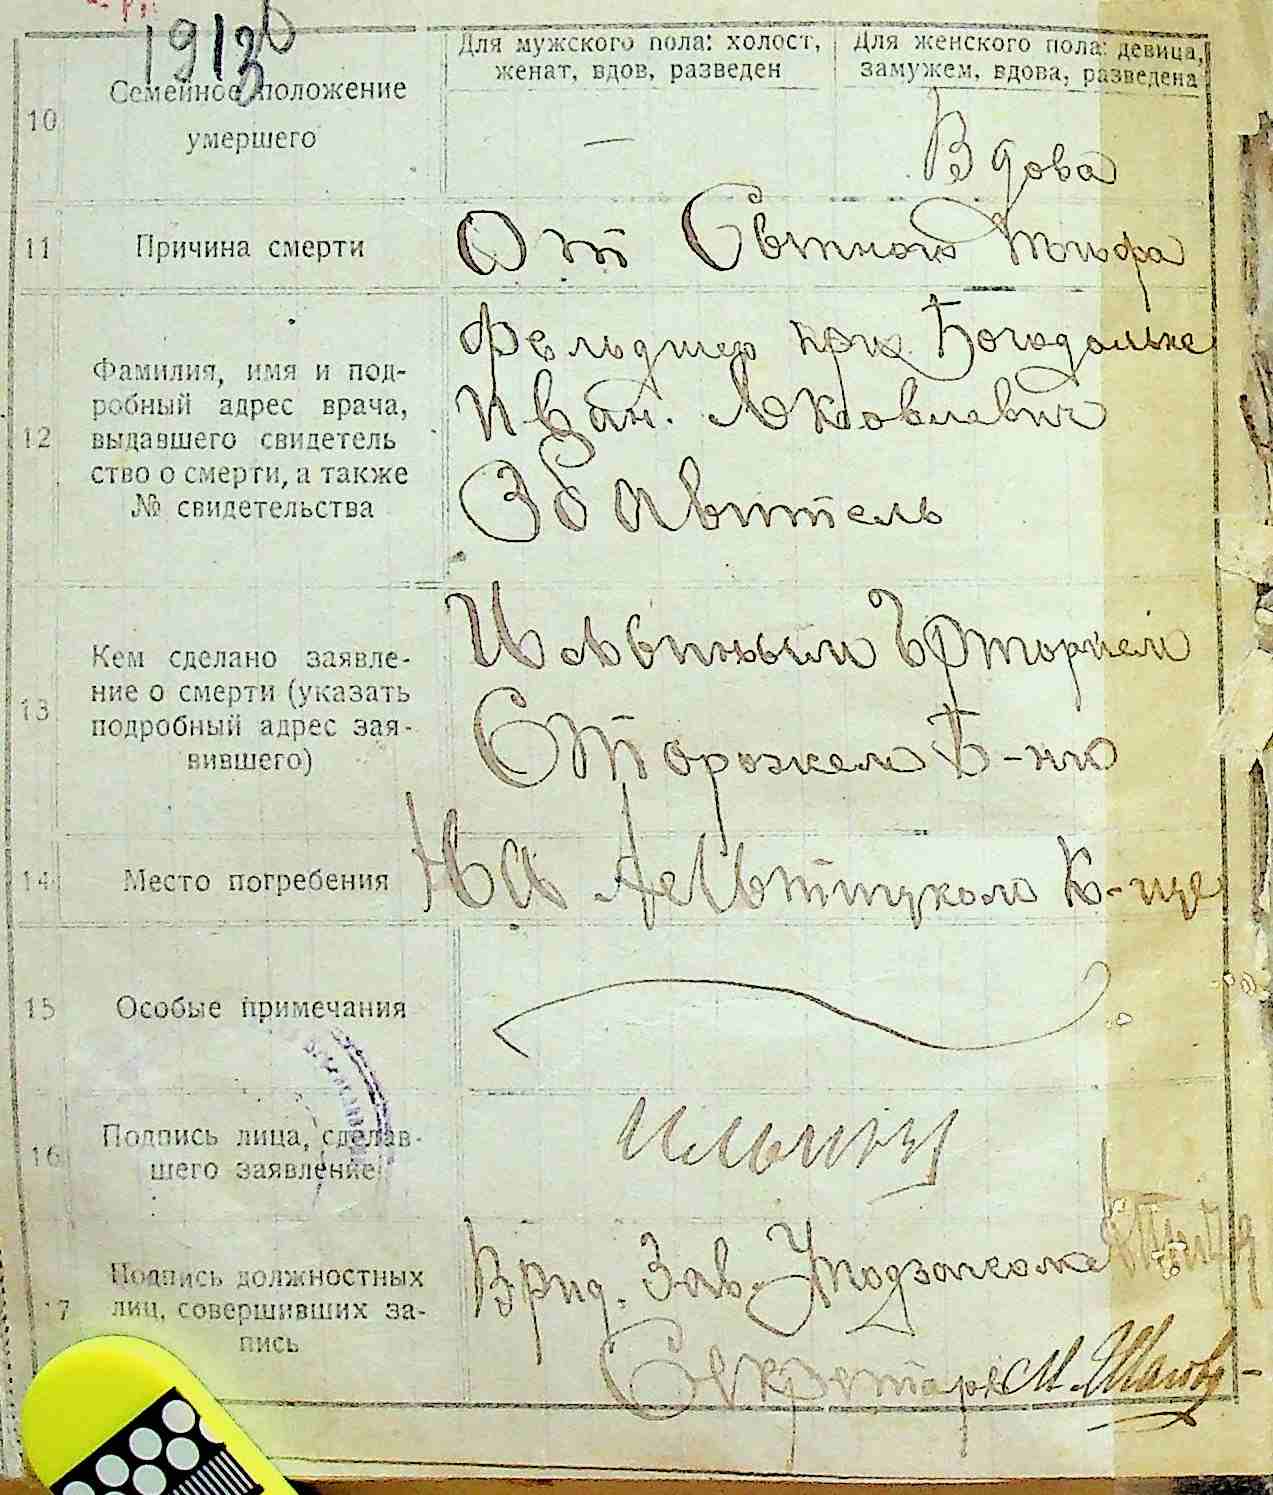 Для мужского пола: холост, женат, вдов, разведен
Для женского пола: девица, замужем, вдова, разведена
10
Семейное положение
умершего
—
Вдова
11
Причина смерти
От Сытного Тифа
12
Фамилия, имя и под-
робный адрес врача,
выдавшего свидетель
ство о смерти, а также
№ свидетельства
Фельдшер при Богадельне
Иван. Яковлевич
Збавитель
13
Кем сделано заявле-
ние о смерти (указать
подробный адрес зая-
вившего)
Ильиным
Сторожем Б-ни
14
Место погребения
На К-ще
15
Особые примечания
16
Подпись лица, сделав-
шего заявление
Ильин
17
Подпись должностных
лиц, совершивших за-
пись
Врид. Зав.
Секретарь М.